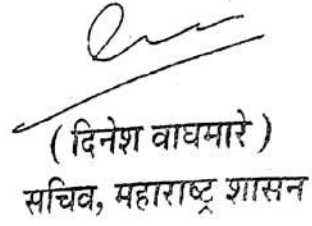 ( दिनेश वाघमारे )
सचिव, महाराष्ट्र शासन